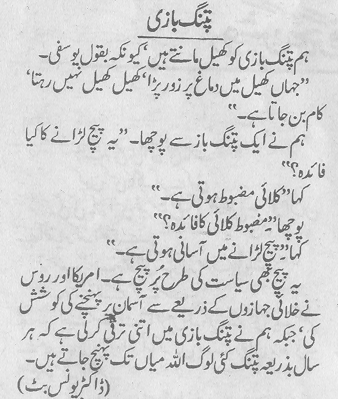 پتنگ بازی
ہم پتنگ بازی کو کھیل مانتے ہیں‘ کیونکہ بقول یوسفی۔
”جہاں کھیل میں دماغ پر زور پڑا‘ کھیل کھیل نہیں رہتا‘
کام بن جاتا ہے۔“
ہم نے ایک پتنگ باز سے پوچھا۔ ”یہ پیچ لڑانے کا کیا
فائدہ؟“
کہا ”کلائی مضبوط ہوتی ہے۔“
پوچھا ”مضبوط کلائی کا فائدہ؟“
کہا ”پیچ لڑانے میں آسانی ہوتی ہے۔“
یہ پیچ بھی سیاست کی طرح پُر پیچ ہے۔ امریکا اور روس
نے خلائی جہازوں کے ذریعے سے آسمان پر پہنچنے کی کوشش
کی‘ جبکہ ہم نے پتنگ بازی میں اتنی ترقی کر لی ہے کہ ہر
سال بذریعہ پتنگ کئی لوگ اللہ میاں تک پہنچ جاتے ہیں۔
(ڈاکٹر یونس بٹ)